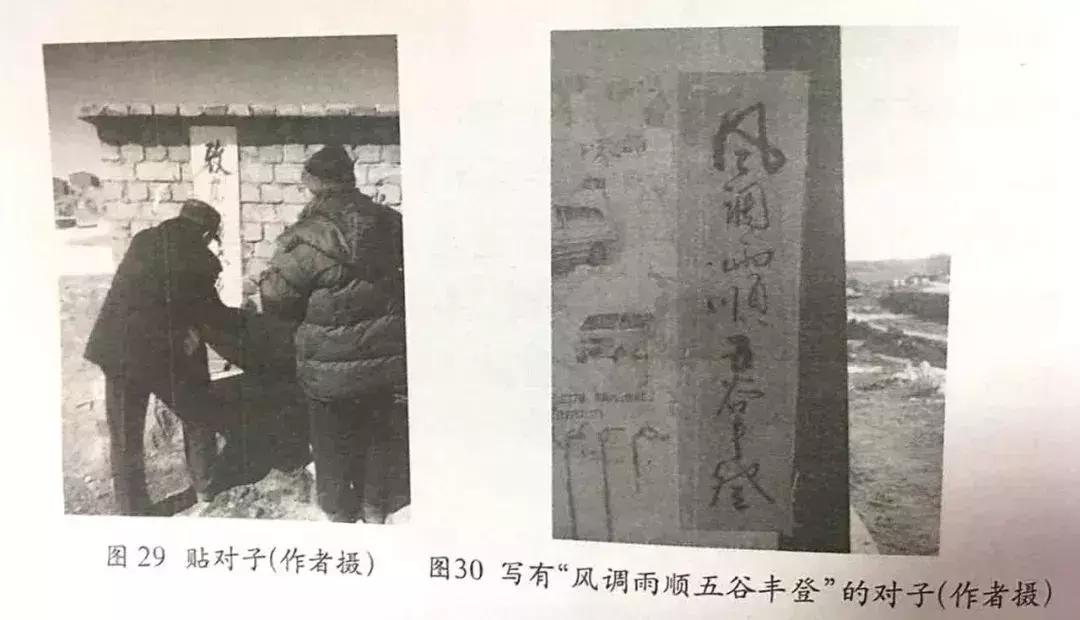 风调雨顺五谷丰登
图 29 贴对子(作者摄)
图30 写有“风调雨顺五谷丰登”的对子(作者摄)